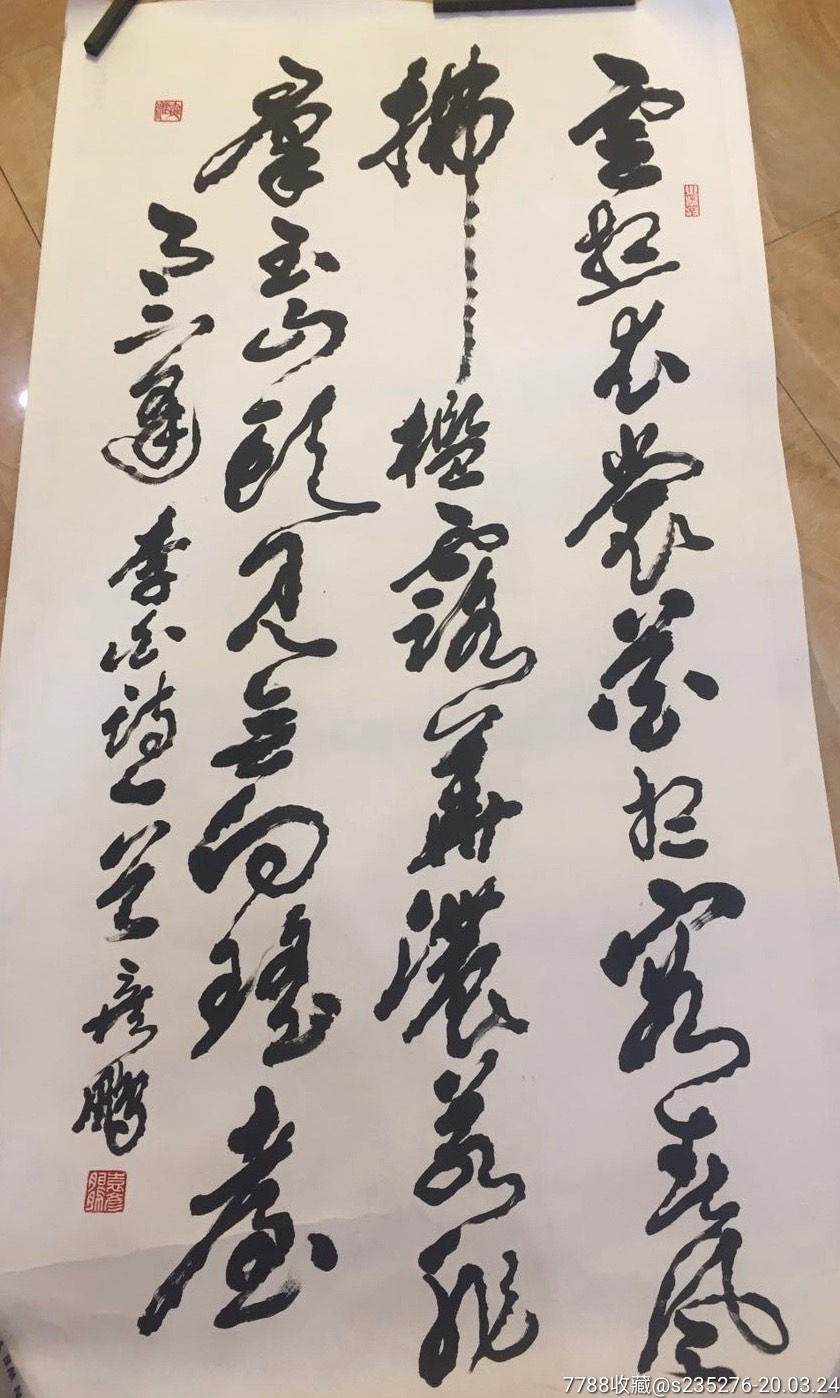 雲想衣裳花想容春風
拂檻露華濃若非
羣玉山頭見會向瑤臺
月下逢 李白詩一首 彦鵬
7788收藏@s235276-20.03.24